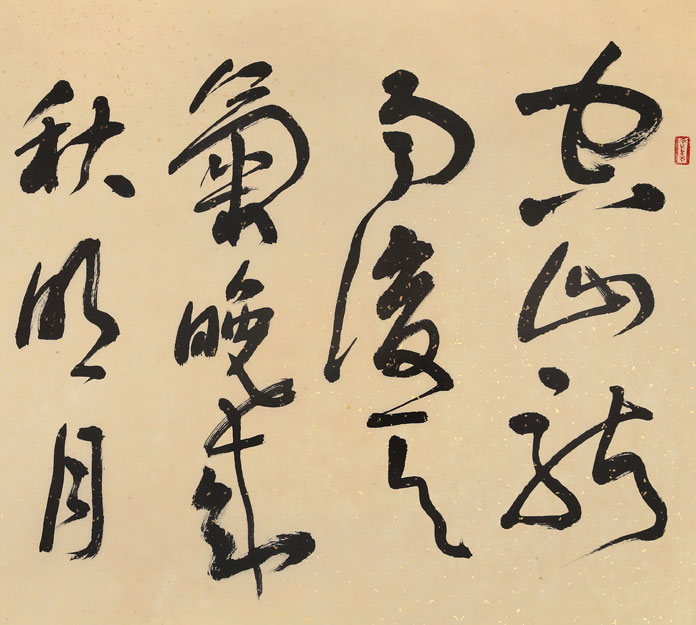 空山新
雨後天
氣晚來
秋明月